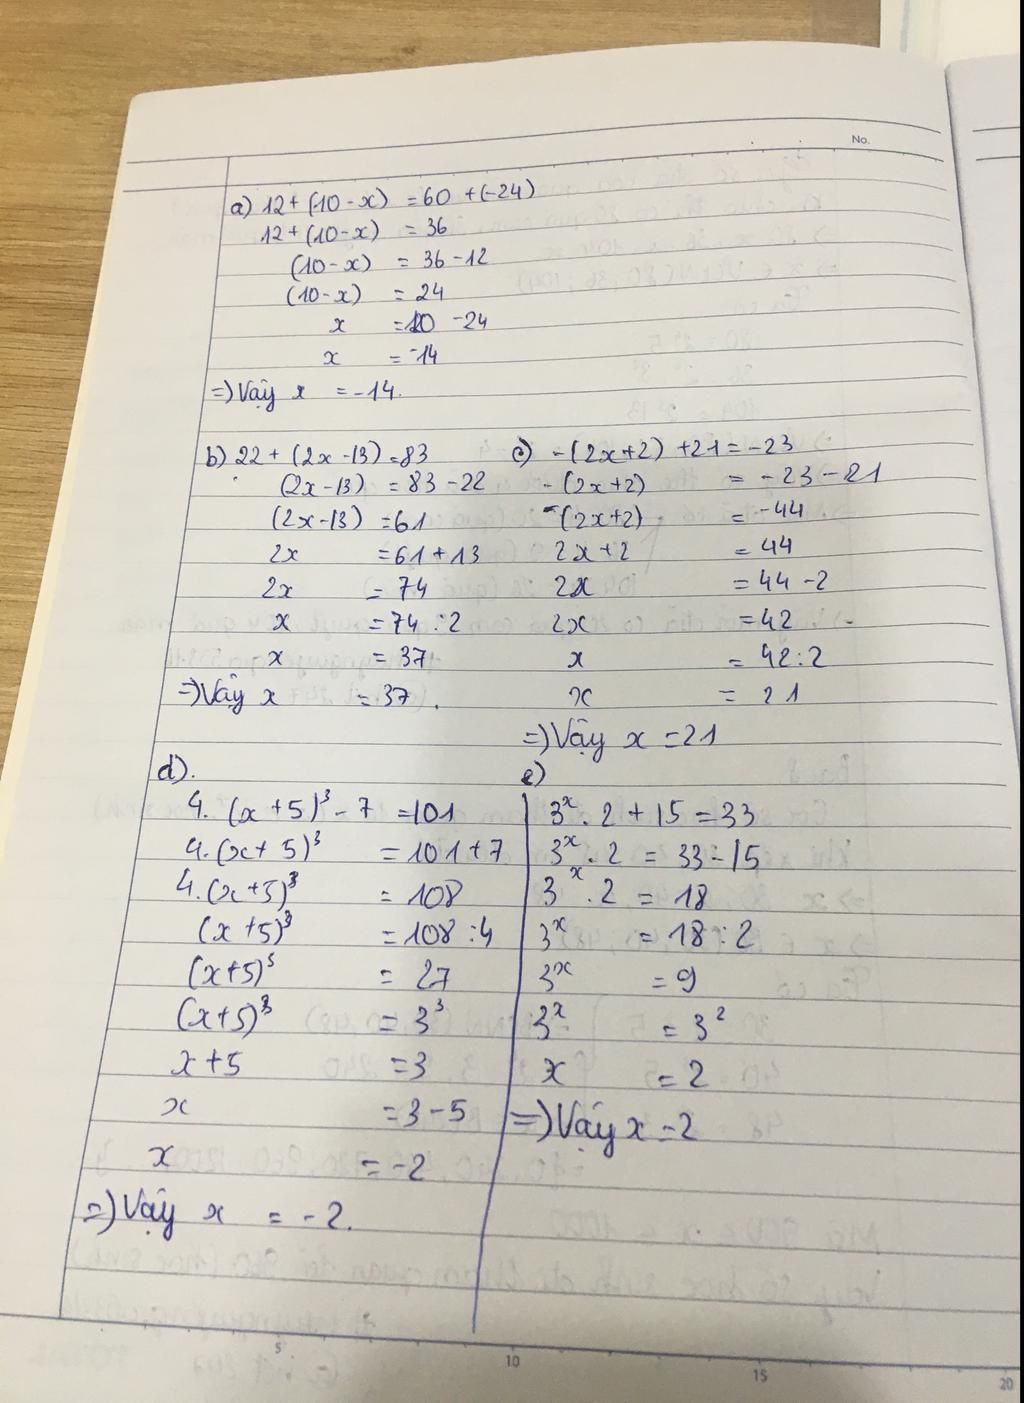 No.
a) 12 + (10 - x) = 60 + (-24)
12 + (10 - x) = 36
(10 - x) = 36 - 12
(10 - x) = 24
x = 10 - 24
x = -14
=) Vậy x = -14.
b) 22 + (2x - 13) = 83
(2x - 13) = 83 - 22
(2x - 13) = 61
2x = 61 + 13
2x = 74
x = 74 : 2
x = 37
=) Vậy x = 37.
c) -(2x + 2) + 21 = -23
-(2x + 2) = -23 - 21
-(2x + 2) = -44
2x + 2 = 44
2x = 44 - 2
2x = 42
x = 42 : 2
x = 21
=) Vậy x = 21
d).
4. (x + 5)³ - 7 = 101
4. (x + 5)³ = 101 + 7
4. (x + 5)³ = 108
(x + 5)³ = 108 : 4
(x + 5)³ = 27
(x + 5)³ = 3³
x + 5 = 3
x = 3 - 5
x = -2
=) Vậy x = -2.
e)
3ˣ . 2 + 15 = 33
3ˣ . 2 = 33 - 15
3ˣ . 2 = 18
3ˣ = 18 : 2
3ˣ = 9
3ˣ = 3²
x = 2
=) Vậy x = 2
5 10 15 20